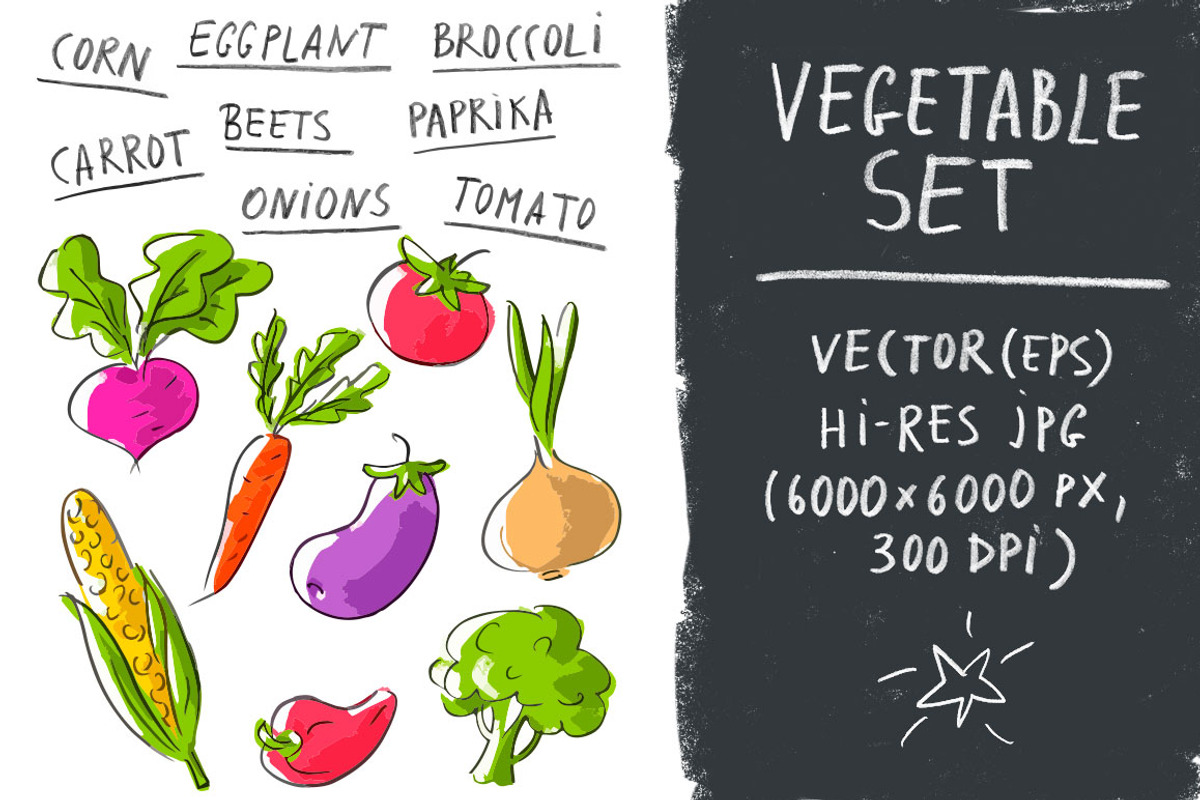 CORN
EGGPLANT
BROCCOLi
CARROT
BEETS
PAPRiKA
ONiONS
TOMATO
VEGETABLE
SET
VECTOR (EPS)
Hi-RES jPG
(6000×6000 PX,
300 DPi)